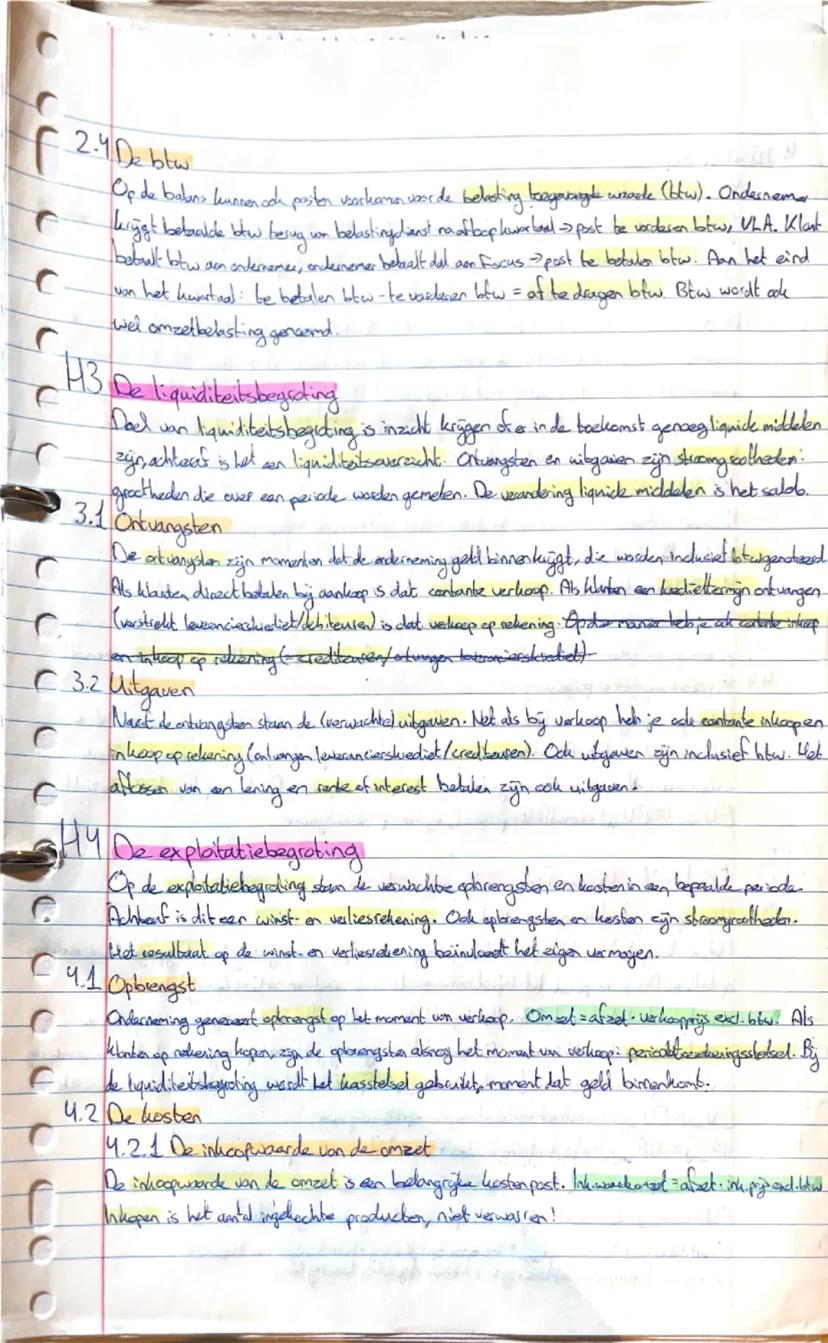 2.4 De btw
Op de balans kunnen ook posten voorkomen voor de belasting toegevoegde waarde (btw). Ondernemer
krijgt betaalde btw terug van belastingdienst na afloop kwartaal → post te vorderen btw, VLA. Klant
betaalt btw aan ondernemer, ondernemer betaalt dat aan fiscus → post te betalen btw. Aan het eind
van het kwartaal: te betalen btw - te vorderen btw = af te dragen btw. Btw wordt ook
wel omzetbelasting genoemd.
H3 De liquiditeitsbegroting
Doel van liquiditeitsbegroting is inzicht krijgen of er in de toekomst genoeg liquide middelen
zijn, achteraf is het een liquiditeitsoverzicht. Ontvangsten en uitgaven zijn stroomgrootheden:
grootheden die over een periode worden gemeten. De verandering liquide middelen is het saldo.
3.1 Ontvangsten
De ontvangsten zijn momenten dat de onderneming geld binnenkrijgt, die worden inclusief btw genoteerd
Als klanten direct betalen bij aankoop is dat contante verkoop. Als klanten een krediettermijn ontvangen
(verstrekt leverancierskrediet/debiteuren) is dat verkoop op rekening. Op de manier heb je ook contante inkoop
en inkoop op rekening (= crediteuren/ontvangen leverancierskrediet)
3.2 Uitgaven
Naast de ontvangsten staan de (verwachte) uitgaven. Net als bij verkoop heb je ook contante inkoop en
inkoop op rekening (ontvangen leverancierskrediet/crediteuren). Ook uitgaven zijn inclusief btw. Het
aflossen van een lening en rente of interest betalen zijn ook uitgaven.
H4 De exploitatiebegroting
Op de exploitatiebegroting staan de verwachte opbrengsten en kosten in een bepaalde periode.
Achteraf is dit een winst- en verliesrekening. Ook opbrengsten en kosten zijn stroomgrootheden.
Het resultaat op de winst- en verliesrekening beïnvloedt het eigen vermogen.
4.1 Opbrengst
Onderneming genereert opbrengst op het moment van verkoop. Omzet = afzet · verkoopprijs excl. btw. Als
klanten op rekening kopen, zijn de opbrengsten alsnog het moment van verkoop: periodetoerekeningsstelsel. Bij
de liquiditeitsbegroting wordt het kasstelsel gebruikt, moment dat geld binnenkomt.
4.2 De kosten
4.2.1 De inkoopwaarde van de omzet
De inkoopwaarde van de omzet is een belangrijke kostenpost. Ink.waarde omzet = afzet · ink.prijs excl. btw
Inkopen is het aantal ingekochte producten, niet verwarren!